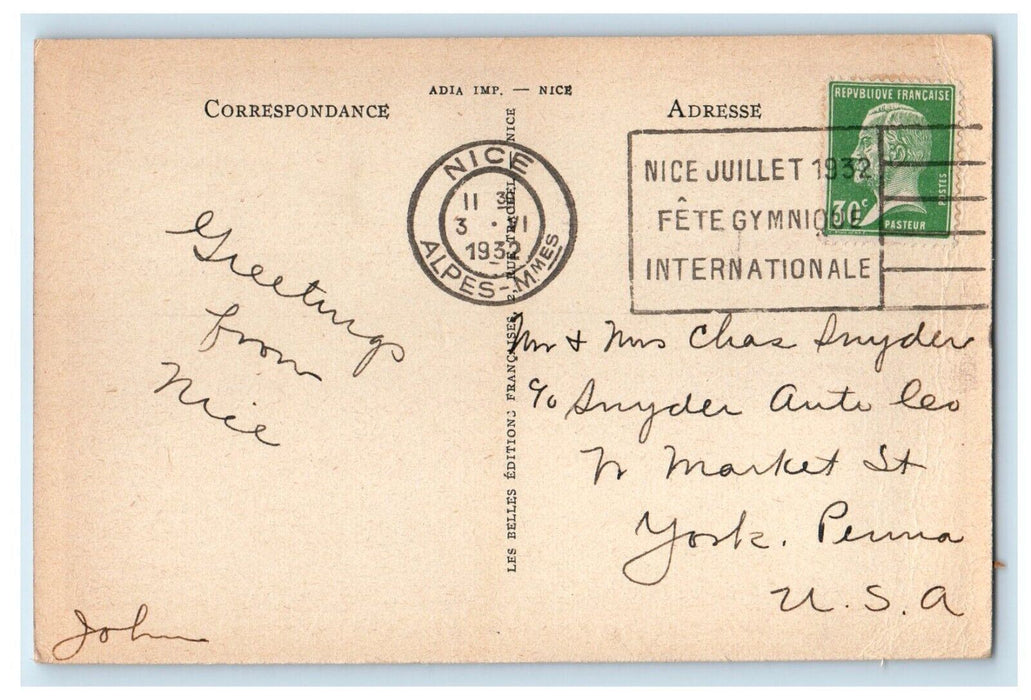 ADIA IMP. — NICE
CORRESPONDANCE
ADRESSE
REPVBLIQVE FRANÇAISE
30c
POSTES
PASTEUR
NICE
11 3
3 · VI
1932
ALPES-MMES
NICE JUILLET 1932
FÊTE GYMNIQUE
INTERNATIONALE
LES BELLES ÉDITIONS FRANÇAISES, 2, RUE TRACHEL NICE
Greetings
from
Nice
John
Mr & Mrs Chas Snyder
c/o Snyder Auto Co
Market St
York. Penna
U.S.A